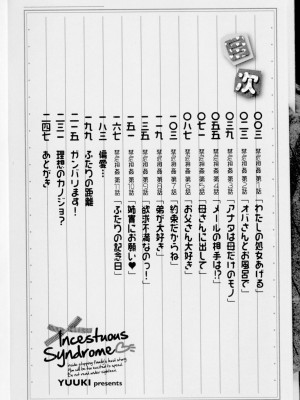 目次
〇〇三 禁忌相姦 第1話 「わたしの処女あげる」
〇一三 禁忌相姦 第2話 「オバさんとお風呂で」
〇三九 禁忌相姦 第3話 「アナタは母だけのモノ」
〇五五 禁忌相姦 第4話 「メールの相手は!?」
〇七一 禁忌相姦 第5話 「母さんに出して」
〇八七 禁忌相姦 第6話 「お父さん大好き」
一〇三 禁忌相姦 第7話 「約束だからね」
一一九 禁忌相姦 第8話 「弟が大好き」
一三五 禁忌相姦 第9話 「欲求不満なのっ!」
一五一 禁忌相姦 第10話 「姉嘗にお願い♥」
一六七 禁忌相姦 第11話 「ふたりの記念日」
一八三 偏愛…
一九九 ふたりの距離
二一五 ガンバリます!
二三一 理想のカノジョ?
二四七 あとがき
Incestuous
Syndrome
YUUKI presents